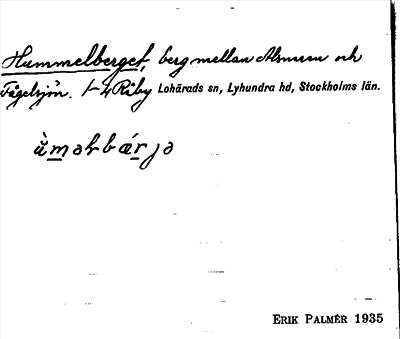 Hummelberget, berg mellan Almaren och
Fågelsjön. 1-4 Råby Lohärads sn, Lyhundra hd, Stockholms län.
ù̀məlbærjə
ERIK PALMÉR 1935